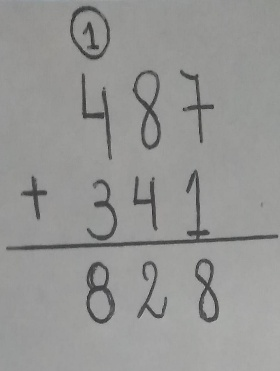 ①
487
+ 341
828